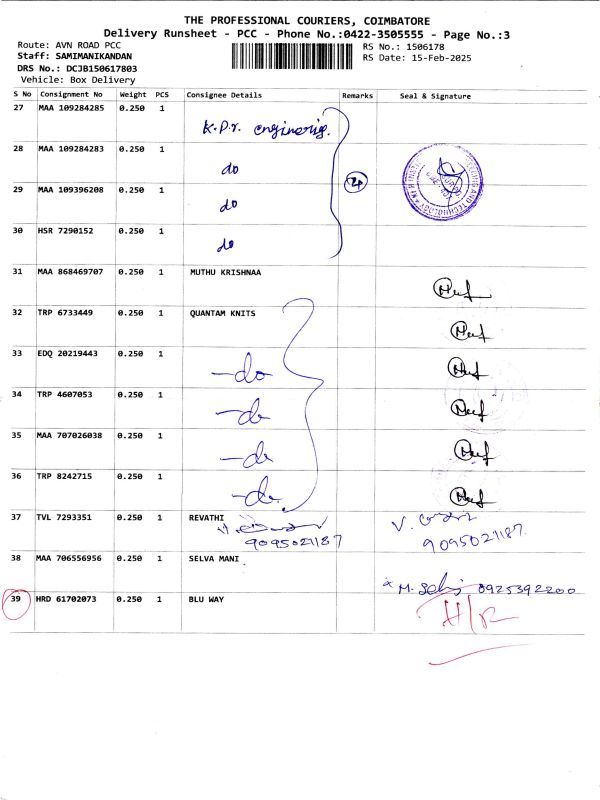 THE PROFESSIONAL COURIERS, COIMBATORE
Delivery Runsheet - PCC - Phone No.:0422-3505555 - Page No.:3
Route: AVN ROAD PCC
RS No.: 1506178
Staff: SAMIMANIKANDAN
RS Date: 15-Feb-2025
DRS No.: DCJB150617803
Vehicle: Box Delivery
S No Consignment No Weight PCS Consignee Details Remarks Seal & Signature
27 MAA 109284285 0.250 1 K.P.r. enginerig.
28 MAA 109284283 0.250 1 do
29 MAA 109396208 0.250 1 do 4
30 HSR 7290152 0.250 1 do
31 MAA 868469707 0.250 1 MUTHU KRISHNAA
32 TRP 6733449 0.250 1 QUANTAM KNITS
33 EDQ 20219443 0.250 1 -do
34 TRP 4607053 0.250 1 -do
35 MAA 707026038 0.250 1 -do
36 TRP 8242715 0.250 1 -do.
37 TVL 7293351 0.250 1 REVATHI
9095021187 9095021187
38 MAA 706556956 0.250 1 SELVA MANI
39 HRD 61702073 0.250 1 BLU WAY